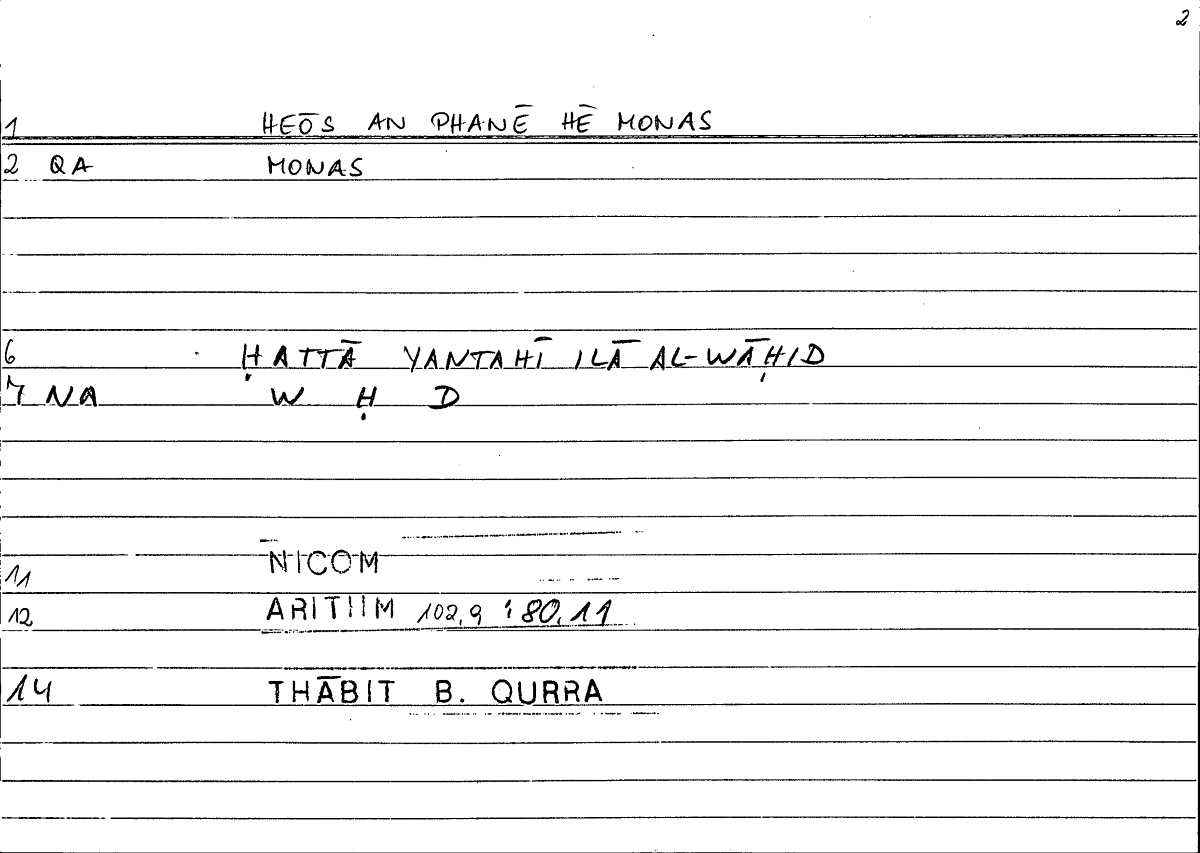 2
1 HEŌS AN PHANĒ HĒ MONAS
2 QA MONAS
6 ḤATTĀ YANTAHĪ ILĀ AL-WĀḤID
7 NA W Ḥ D
11 NICOM
12 ARITHM 102,9 : 80.11
14 THĀBIT B. QURRA